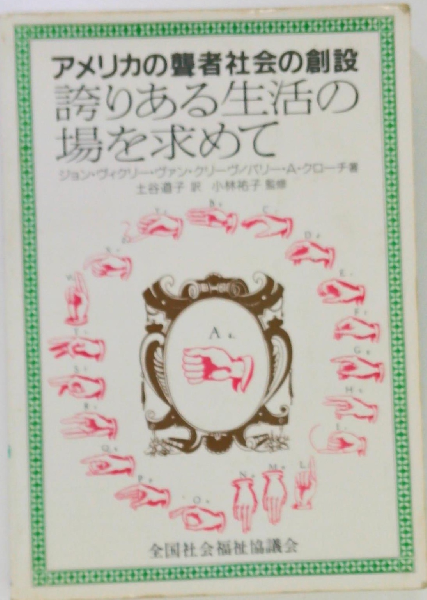 アメリカの聾者社会の創設
誇りある生活の
場を求めて
ジョン・ヴィクリー・ヴァン・クリーヴ/バリー・A・クローチ著
土谷道子 訳 小林祐子 監修
A
B
C
D
E
F
G
H
L
M
N
O
P
Q
全国社会福祉協議会